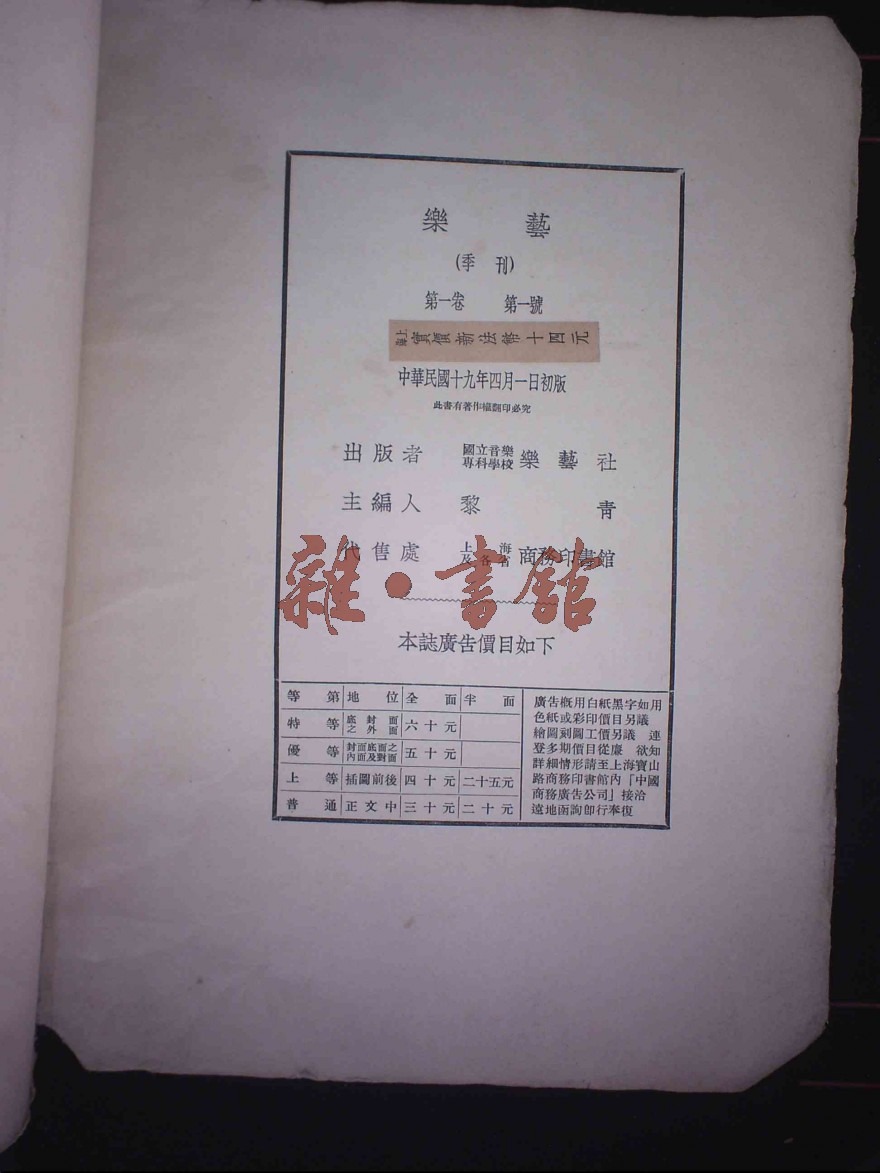 樂藝
(季刊)
第一卷 第一號
上海實價新法幣十四元
中華民國十九年四月一日初版
此書有著作權翻印必究
出版者 國立音樂專科學校 樂藝社
主編人 黎青
代售處 上海及各省 商務印書館
雜·書館
本誌廣告價目如下
等第 地位 全面 半面
特等 底封面之外面 六十元
優等 封面底面之內面及對面 五十元
上等 插圖前後 四十元 二十五元
普通 正文中 三十元 二十元
廣告概用白紙黑字如用
色紙或彩印價目另議
繪圖刻圖工價另議 連
登多期價目從廉 欲知
詳細情形請至上海寶山
路商務印書館內「中國
商務廣告公司」接洽
遠地函詢卽行奉復